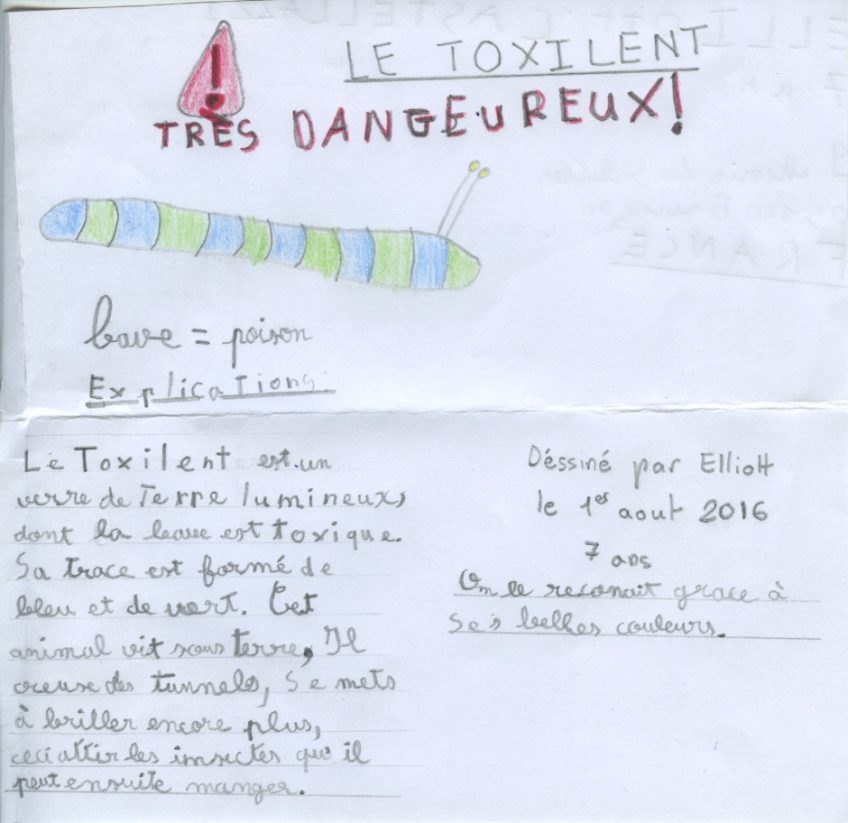 !
LE TOXILENT
TRÈS DANGEUREUX!
bave = poison
Explications:
Le Toxilent est un
verre de Terre lumineux,
dont la bave est toxique.
Sa trace est formé de
bleu et de vert. Cet
animal vit sous terre, Il
creuse des tunnels, Se mets
à briller encore plus,
ceci attir les insectes qu'il
peut ensuite manger.
Déssiné par Elliott
le 1er aout 2016
7 ans
On le reconait grace à
ses belles couleurs.